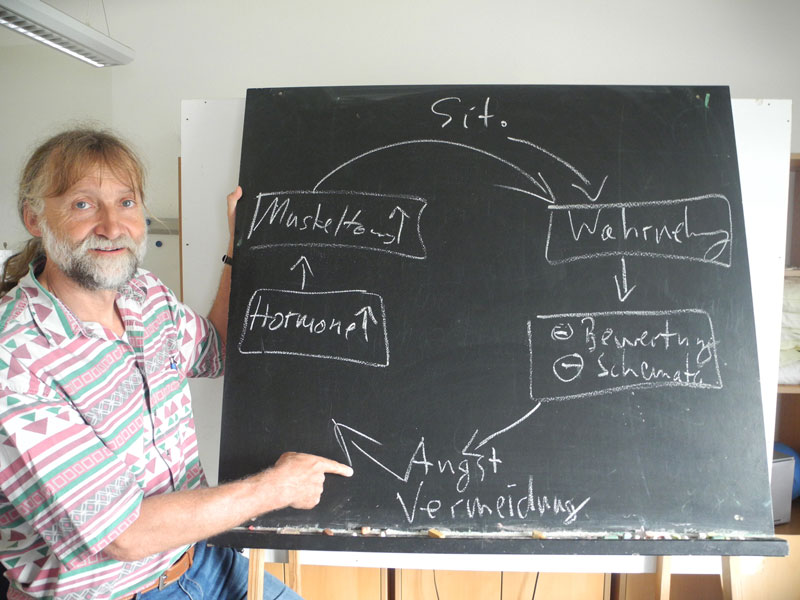 Sit.
Muskeltonus ↑
Wahrnehmung
Hormone ↑
⊖ Bewertung
⊖ Schemata
Angst
Vermeidung